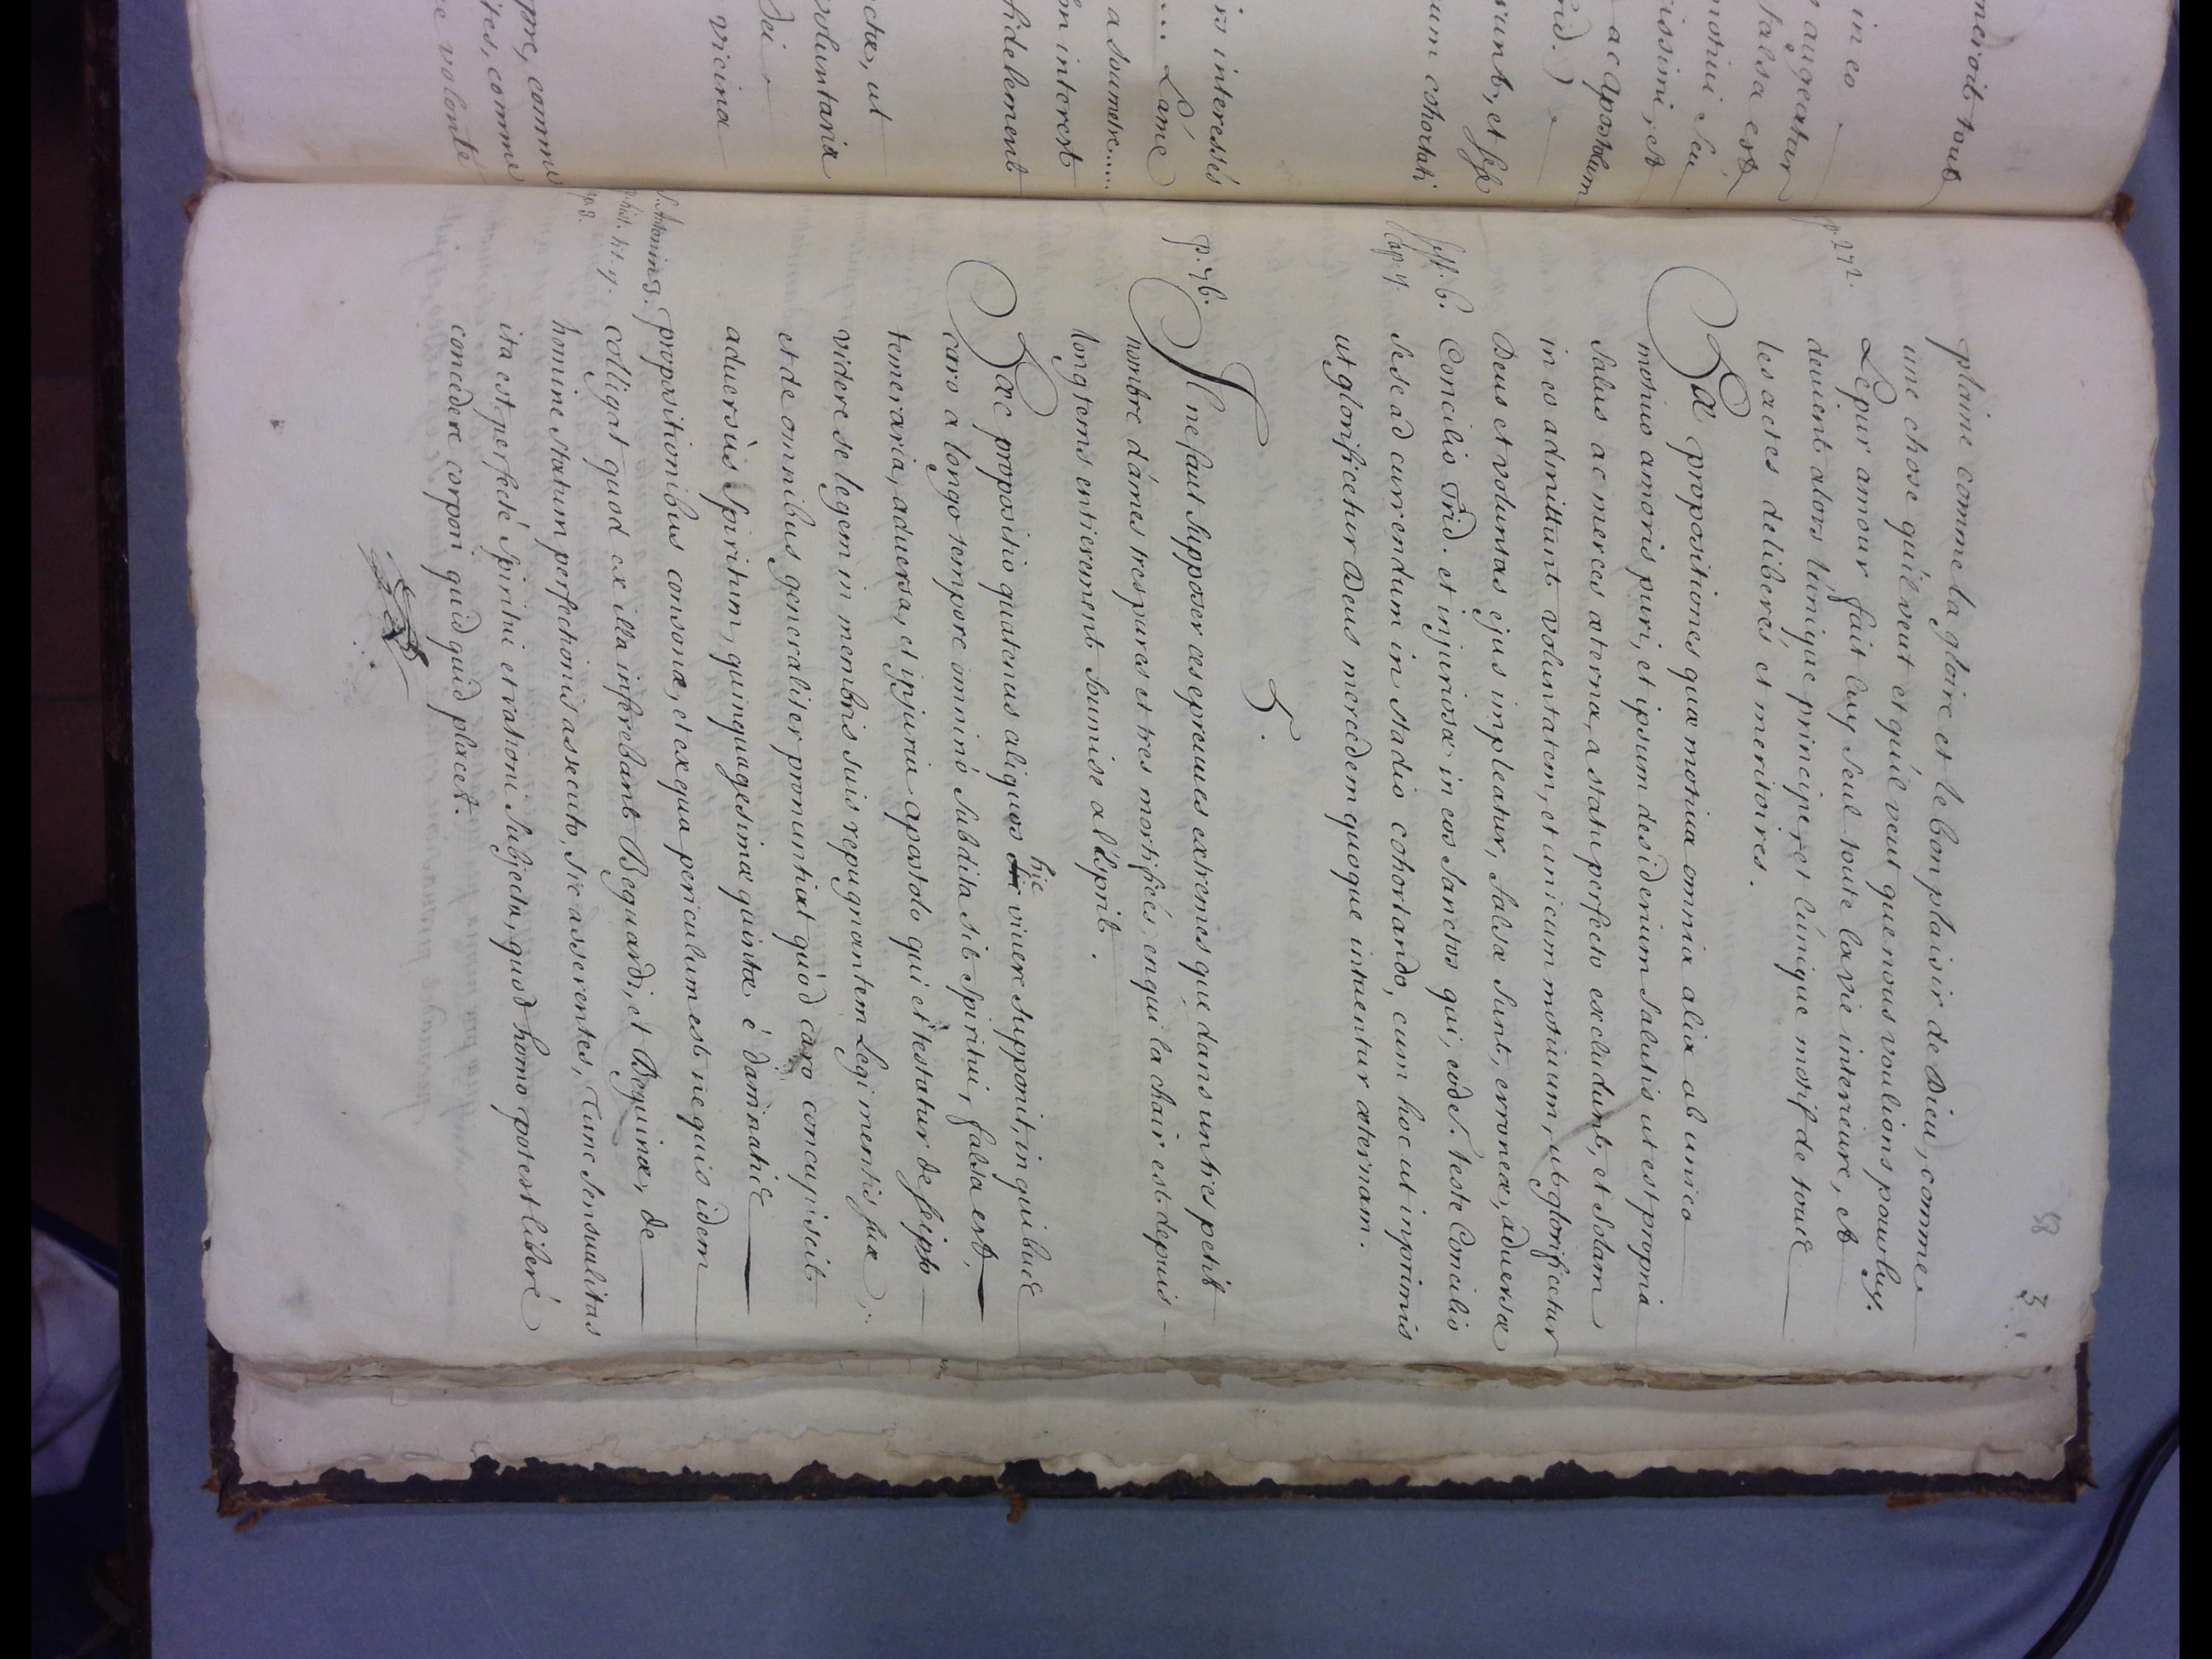 meroit tout
in eo
augeatur
falsa est
motivi seu
issimi, et
ac apostolum
rid. )
sunt, et sese
um cohortati
irs interessés
.... L'ame
a soumetre.....
on interest
fidelement
ctæ, ut
voluntaria
Dei
vicina
pre, comme
tes, comme
e volonté
58 3.
plaine comme la gloire et le bon plaisir de Dieu, comme
une chose qu'il veut et qu'il veut que nous voulions pour luy.
p. 272. Le pur amour fait luy seul toute la vie interieure, et
devient alors l'unique principe, et l'unique motif de tous
les actes deliberés et meritoires.
Hæ propositiones quæ motiva omnia alia ab unico
motivo amoris puri, et ipsum desiderium salutis ut est propria
salus ac merces æterna, a statu perfecto excludunt, et solam
in eo admittunt voluntatem, et unicum motivum, ut glorificetur
Deus et voluntas ejus impleatur, falsæ sunt, erroneæ, adversæ
sess. 6. Concilio Trid. et injuriosæ in eos sanctos qui, eodem teste Concilio
cap. 11. sese ad currendum in stadio cohortando, cum hoc ut inprimis
ut glorificetur Deus mercedem quoque intuentur æternam.
5.
p. 76. Il ne faut supposer ces epreuves extremes que dans un tres petit
nombre d'ames tres pures et tres mortifiés, en qui la chair est depuis
long tems entierement soumise a l'esprit.
Hæc propositio quatenus aliquos hic vivere supponit, in quibus
caro a longo tempore omninò subdita sit spiritui, falsa est,
temeraria, adversa, et injuria apostolo qui et testatur de seipso
videre se legem in membris suis repugnantem legi mentis suæ ;
et de omnibus generaliter pronuntiat quòd caro concupiscit
adversùs spiritum, quinquagesimæ quintæ è damnatis
S. Antonin. 3. propositionibus consona, et ex qua periculum est ne quis idem
p. hist. tit. 21. colligat quod ex illa inferebant Beguardi, et Beguinæ, de
cap. 3. homine statum perfectionis assecuto, sic asserentes, Tunc sensualitas
ita est perfectè spiritui et rationi subjecta, quod homo potest liberè
concedere corpori quidquid placet.